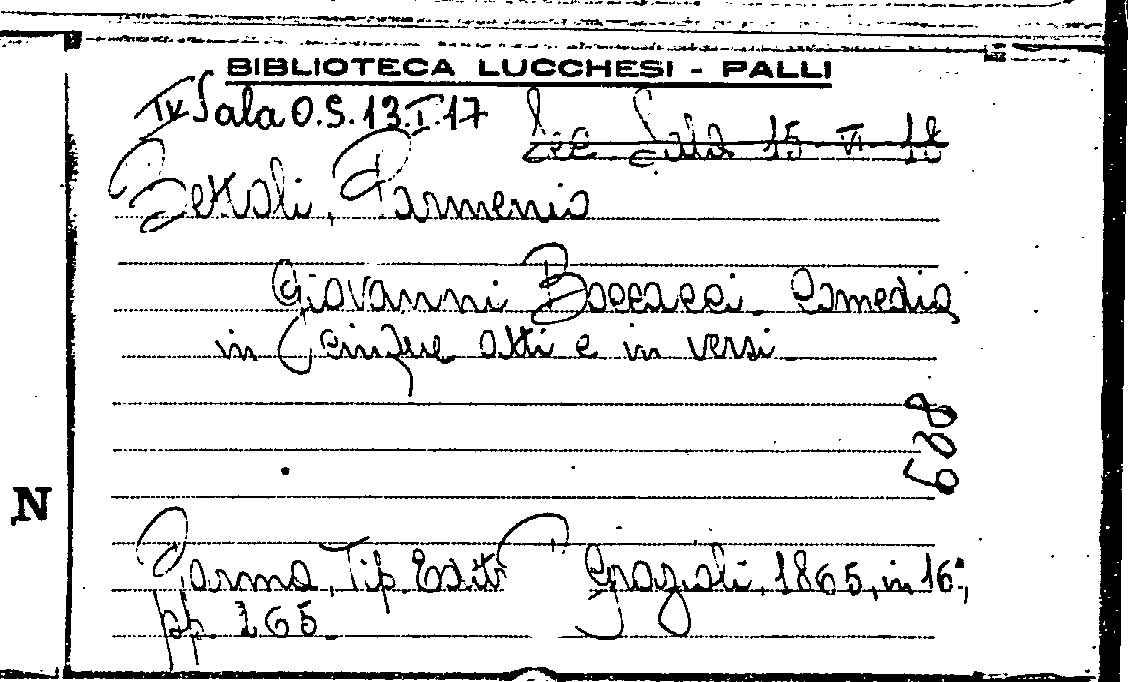 BIBLIOTECA LUCCHESI - PALLI
IV Sala O.S. 13.I.17
Sec Sala 15-VI-18
Bettoli, Parmenio
Giovanni Boccacci. Comedia
in cinque atti e in versi
688
N
Parma, Tip. Editr Grazioli, 1865, in 16°,
pp. 165.